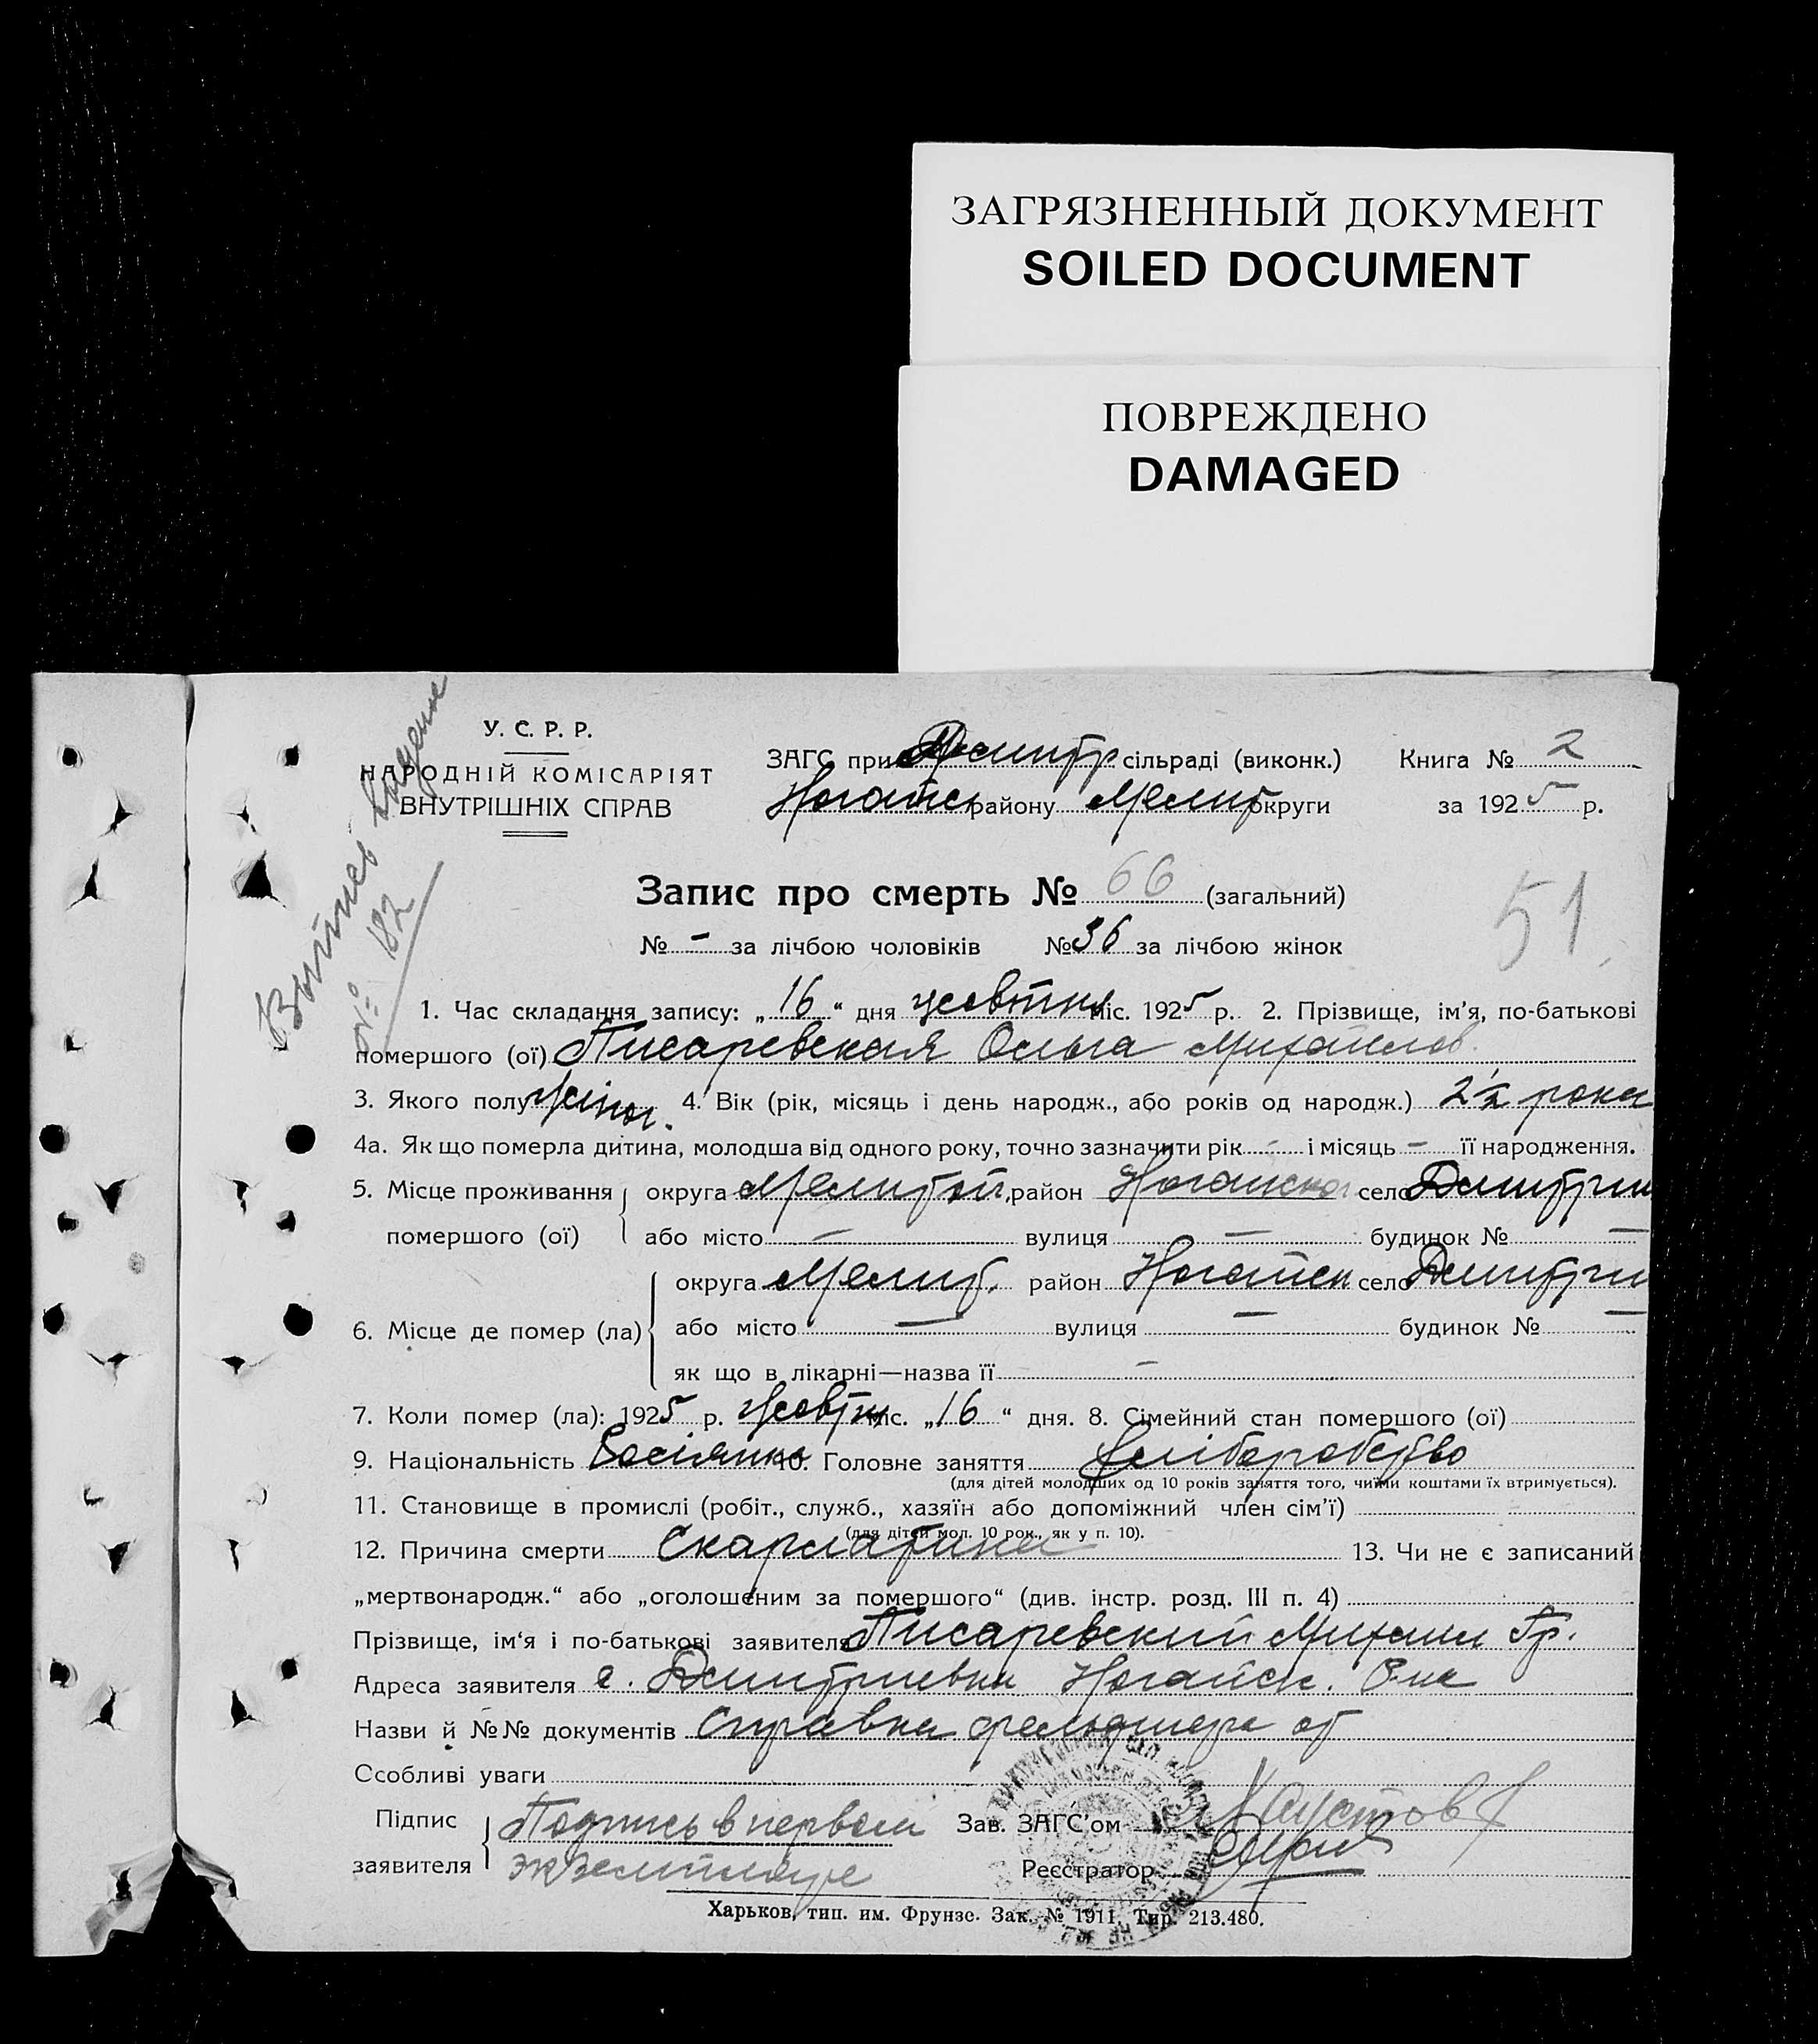 ЗАГРЯЗНЕННЫЙ ДОКУМЕНТ
SOILED DOCUMENT
ПОВРЕЖДЕНО
DAMAGED
У. С. Р. Р.
НАРОДНІЙ КОМІСАРІЯТ
ВНУТРІШНІХ СПРАВ
ЗАГС при Дмитр сільраді (виконк.) Книга № 2
Ногайск району Мелит округи за 1925 р.
№ 182
Запис про смерть № 66 (загальний)
51
№ - за лічбою чоловіків № 36 за лічбою жінок
1. Час складання запису: „16“ дня жовтня міс. 1925 р. 2. Прізвище, ім'я, по-батькові
помершого (ої) Писаревская Ольга Михайлов.
3. Якого полу жіноч. 4. Вік (рік, місяць і день народж., або років од народж.) 2½ рока
4а. Як що померла дитина, молодша від одного року, точно зазначити рік - і місяць - її народження.
5. Місце проживання помершого (ої) округа Мелитоп, район Ногайско село Дмитрів
або місто — вулиця — будинок № —
6. Місце де помер (ла) округа Мелит. район Ногайск село Дмитрів
або місто — вулиця — будинок № —
як що в лікарні—назва її —
7. Коли помер (ла): 1925 р. жовтн міс. „16“ дня. 8. Сімейний стан помершого (ої)
9. Національність Росіянка 10. Головне заняття хліборобство
(для дітей молодших од 10 років заняття того, чиїми коштами їх втримується).
11. Становище в промислі (робіт., служб., хазяїн або допоміжний член сім'ї)
(для дітей мол. 10 рок., як у п. 10).
12. Причина смерти Скарлатина 13. Чи не є записаний
„мертвонародж.“ або „оголошеним за помершого“ (див. інстр. розд. III п. 4)
Прізвище, ім'я і по-батькові заявителя Писаревский Михаил Гр.
Адреса заявителя с. Дмитриевка Ногайск. Р-на
Назви й №№ документів Справка фельдшера от
Ссобливі уваги
Підпис заявителя Подпись в первом Зав. ЗАГС'ом Хаустов
экземпляре Реєстратор
Харьков, тип. им. Фрунзе. Зак. № 1911. Тир. 213.480.